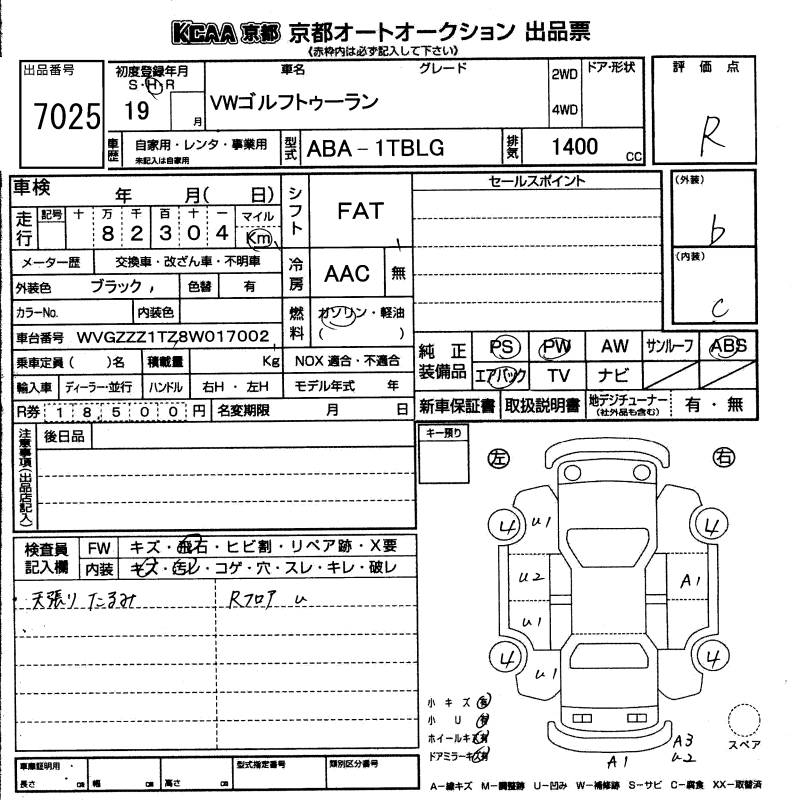 KCAA 京都 京都オートオークション 出品票
《赤枠内は必ず記入して下さい》
出品番号
7025
初度登録年月
S・H・R
19
月
車名
グレード
VWゴルフトゥーラン
2WD
4WD
ドア・形状
評価点
R
車歴
自家用・レンタ・事業用
未記入は自家用
型式
ABA－1TBLG
排気
1400
CC
車検
年 月( 日)
シフト
FAT
セールスポイント
(外装)
b
(内装)
C
走行
記号 十 万 千 百 十 一 マイル
8 2 3 0 4 Km
メーター歴 交換車・改ざん車・不明車
冷房
AAC
無
外装色 ブラック 色替 有
カラーNo. 内装色
燃料
ガソリン・軽油
( )
車台番号 WVGZZZ1TZ8W017002
乗車定員( )名 積載量 Kg NOX 適合・不適合
輸入車 ディーラー・並行 ハンドル 右H・左H モデル年式 年
R券 18,500 円 名変期限 月 日
純正装備品
PS PW AW サンルーフ ABS
エアバック TV ナビ
新車保証書 取扱説明書 地デジチューナー 有・無
(社外品も含む)
注意事項(出品店記入)
後日品
キー預り
左
右
検査員記入欄
FW キズ・飛石・ヒビ割・リペア跡・X要
内装 キズ・汚レ・コゲ・穴・スレ・キレ・破レ
天張り たるみ
Rフロア u
4
u1
4
u2
A1
u1
4
u1
4
小キズ 有
小U 有
ホイールキズ 有
ドアミラーキズ 有
A1
A3
u2
スペア
車庫証明用
長さ cm 幅 cm 高さ cm
型式指定番号
類別区分番号
A－線キズ M－調整跡 U－凹み W－補修跡 S－サビ C－腐食 XX－取替済